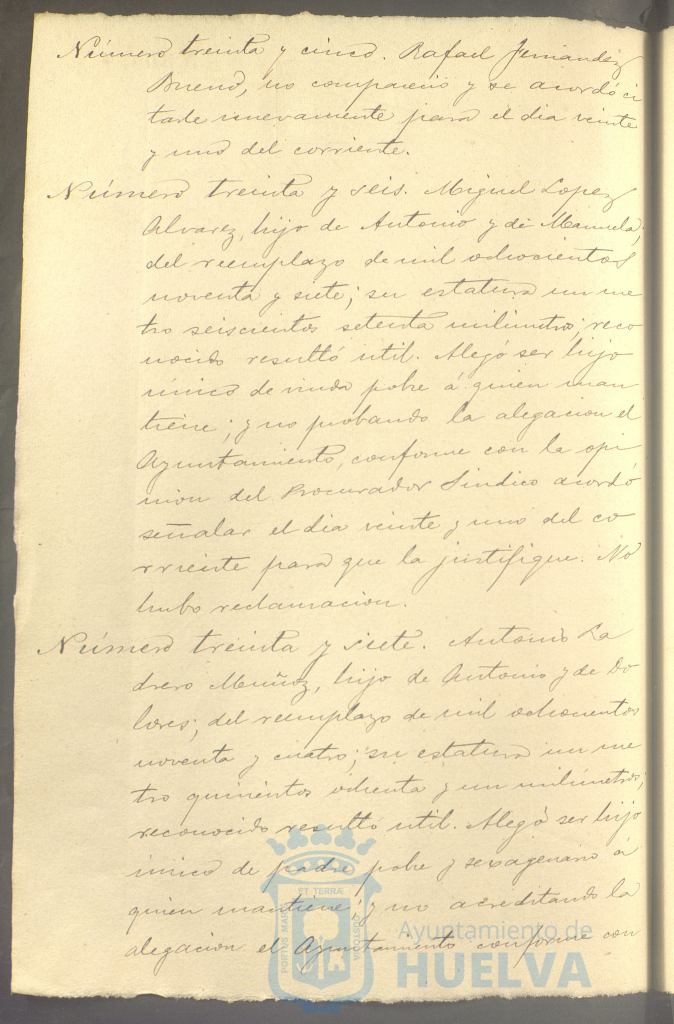 Número treinta y cinco. Rafael Fernandez
Bueno, no compareció y se acordó ci
tarle nuevamente para el dia veinte
y uno del corriente.
Número treinta y seis. Miguel Lopez
Alvarez, hijo de Antonio y de Manuela,
del reemplazo de mil ochocientos
noventa y siete; su estatura un me
tro seiscientos setenta milimetros; reco
nocido resultó util. Alegó ser hijo
único de viuda pobre á quien man
tiene; y no probando la alegacion el
Ayuntamiento, conforme con la opi
nion del Procurador Sindico acordó
señalar el dia veinte y uno del co
rriente para que la justifique. No
hubo reclamacion.
Número treinta y siete. Antonio La
drero Muñoz, hijo de Antonio y de Do
lores; del reemplazo de mil ochocientos
noventa y cuatro; su estatura un me
tro quinientos ochenta y un milímetros;
reconocido resultó util. Alegó ser hijo
único de padre pobre y sexagenario á
quien mantiene; y no acreditando la
alegacion el Ayuntamiento conforme con
PORTUS MARIS ET TERRÆ CUSTODIA
Ayuntamiento de
HUELVA